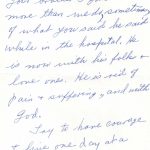 more than ready sometime
of what you said he said
while in the hospital. He
is now with his folks &
love ones. He is rid of
pain & suffering, and with
God.
Try to have courage
& live one day at a